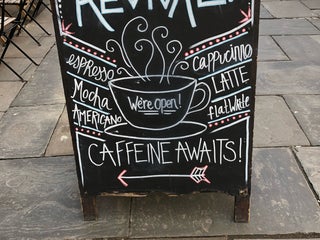 REVIVAL!
espresso
Mocha
AMERICANO
We're open!
Cappuccino
LATTE
flat white
CAFFEINE AWAITS!